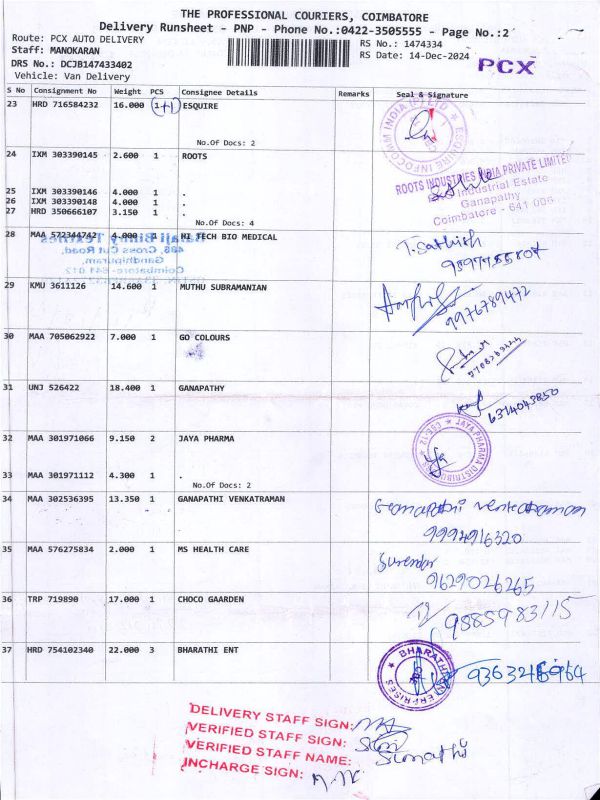 THE PROFESSIONAL COURIERS, COIMBATORE
Delivery Runsheet - PNP - Phone No.:0422-3505555 - Page No.:2
Route: PCX AUTO DELIVERY
Staff: MANOKARAN
DRS No.: DCJB147433402
Vehicle: Van Delivery
RS No.: 1474334
RS Date: 14-Dec-2024
PCX
S No Consignment No Weight PCS Consignee Details Remarks Seal & Signature
23 HRD 716584232 16.000 1+1 ESQUIRE
No.Of Docs: 2
ESQUIRE INFOCOM INDIA (P) LTD
24 IXM 303390145 2.600 1 ROOTS
25 IXM 303390146 4.000 1 .
26 IXM 303390148 4.000 1 .
27 HRD 350666107 3.150 1 .
No.Of Docs: 4
ROOTS INDUSTRIES INDIA PRIVATE LIMITED
Industrial Estate
Ganapathy
Coimbatore - 641 006
28 MAA 572344742 4.000 1 HI TECH BIO MEDICAL
T. Sathish
Cross Cut Road,
Gandhipuram,
Coimbatore- 641 012
29 KMU 3611126 14.600 1 MUTHU SUBRAMANIAN
9976789472
30 MAA 705062922 7.000 1 GO COLOURS
31 UNJ 526422 18.400 1 GANAPATHY
6374043850
32 MAA 301971066 9.150 2 JAYA PHARMA
33 MAA 301971112 4.300 1 .
No.Of Docs: 2
JAYA PHARMA DISTRIBUTORS
CBE-12
34 MAA 302536395 13.350 1 GANAPATHI VENKATRAMAN
Ganapathi Venkatraman
9994916320
35 MAA 576275834 2.000 1 MS HEALTH CARE
Surendar
9629026265
36 TRP 719890 17.000 1 CHOCO GAARDEN
9885983115
37 HRD 754102340 22.000 3 BHARATHI ENT
BHARATHI ENTERPRISES
DELIVERY STAFF SIGN:
VERIFIED STAFF SIGN:
VERIFIED STAFF NAME: Sumathi
INCHARGE SIGN: